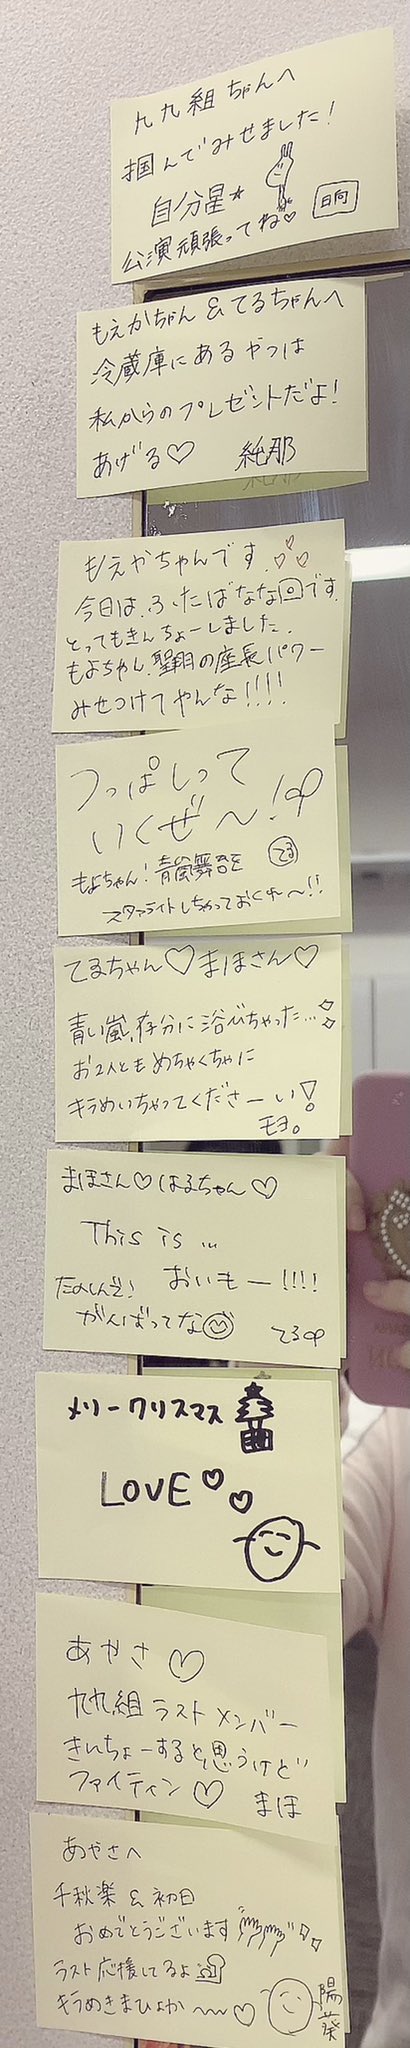 九九組ちゃんへ
掴んでみせました!
自分星★
日向
公演頑張ってね♡
もえかちゃん&てるちゃんへ
冷蔵庫にあるやつは
私からのプレゼントだよ!
あげる♡ 純那
もえかちゃんです♡♡♡
今日は、ふたばなな回です。
とってもきんちょーしました。
もよちゃん、聖翔の座長パワー
みせつけてやんな!!!!
つっぱしって
いくぜ〜!
もよちゃん!青嵐舞台を てる
スタァライトしちゃっておくれ〜!!
てるちゃん♡まほさん♡
青い嵐、存分に浴びちゃった…
お2人ともめちゃくちゃに
キラめいちゃってくださーい!
モヨ。
まほさん♡はるちゃん♡
This is …
おいもー!!!!
たのしんで!
がんばってな てる
メリークリスマス
LOVE♡♡
あやさ♡
九九組ラストメンバー
きんちょーすると思うけど
ファイティン♡ まほ
あやさへ
千秋楽&初日
おめでとうございます
ラスト応援してるよ
キラめきまひょか〜〜♡
陽葵